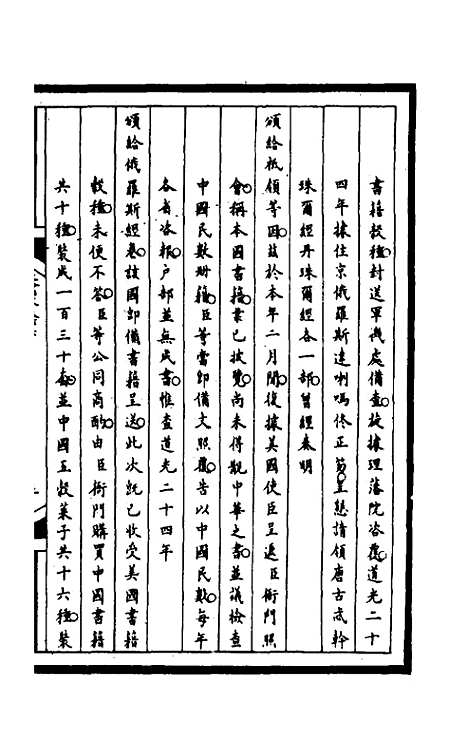 書籍穀種封送軍機處備查旋據理藩院咨覆道光二十
四年據住京俄羅斯達喇嘛佟正笏呈懇請領唐古忒幹
珠爾經丹珠爾經各一部曾經奏明
頒給祗領等因茲於本年二月間復據美國使臣呈遞臣衙門照
會稱本國書籍業已披覽尚未得觀中華之書並議檢查
中國民數册籍臣等當即備文照覆告以中國民數每年
各省咨報户部並無民書惟查道光二十四年
頒給俄羅斯經卷該國即備書籍呈送此次既已收受美國書籍
穀種未便不答臣等公同商酌由臣衙門購買中國書籍
共十種裝成一百三十套並中國五穀菜子共十六種裝